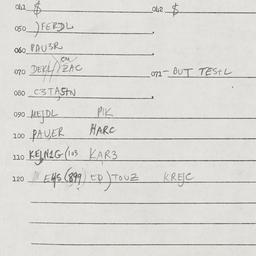 041 $ 042 $
050 )FERDL
060 PAU3R
070 DEKL//ZAC 071- OUT TESTL
080 C3TA5TN
090 MEJDL PIK
100 PAUER HARC
110 KEJN1G(103 KAR3
120 EHS(899) ED)TOUZ KREJC